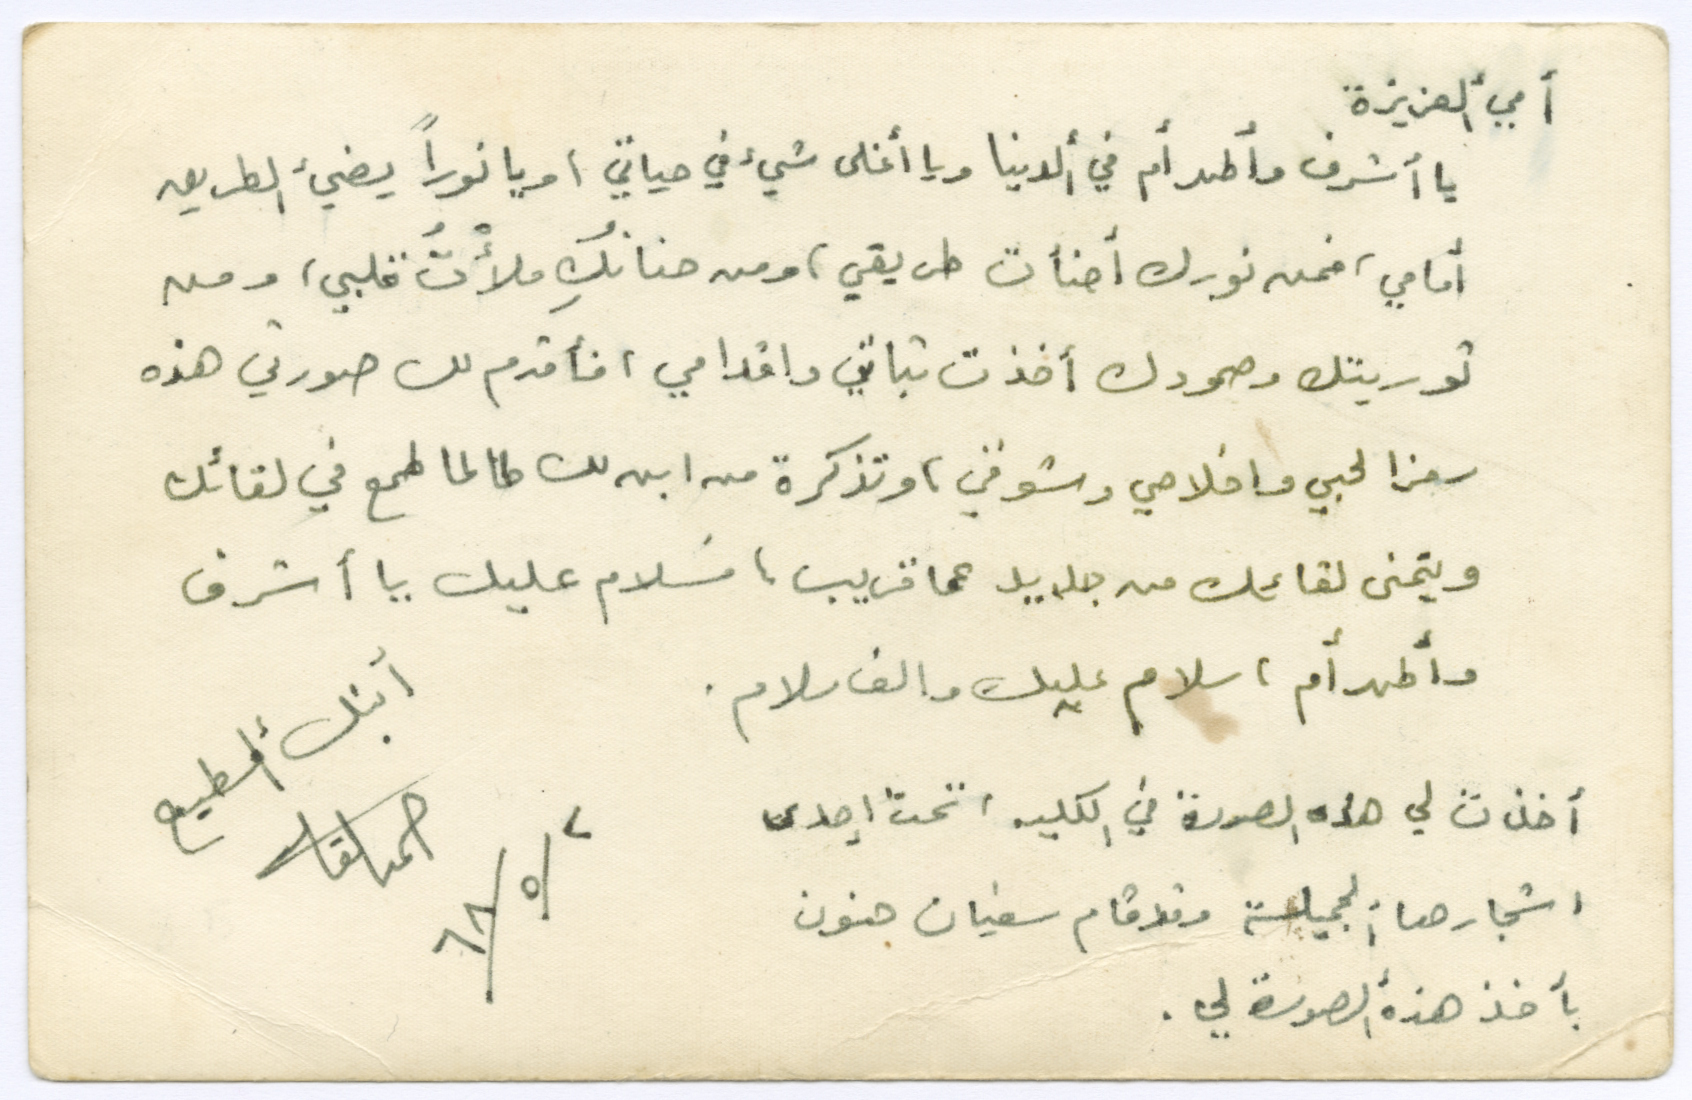 أمي ألعزيزة
يا أشرف وأطهر أم في ألدينا ويا أغلى شيء في حياتي، ويا نوراً يضيئ الطريق
أمامي، فمن نورك أضأت طريقي، ومن حنانكِ ملأْتُ قلبي، ومن
ثوريتك وصمودك أخذت ثباتي واقدامي، فأقدم لك صورتي هذه
رمزا لحبي واخلاصي وشوقي، وتذكرة من ابن لك طالما طمع في لقائك
ويتمنى لقاءك من جديد عما قريب، فسلام عليك يا أشرف
وأطهر أم، سلام عليك والف سلام.
أبنك ألمطيع
أخذت لي هذه الصورة في الكلية، تحت احدى
اشجارها ألجميلة وقد قام سفيان حنون
بأخذ هذه ألصورة لي.
٦٨/٥/٢